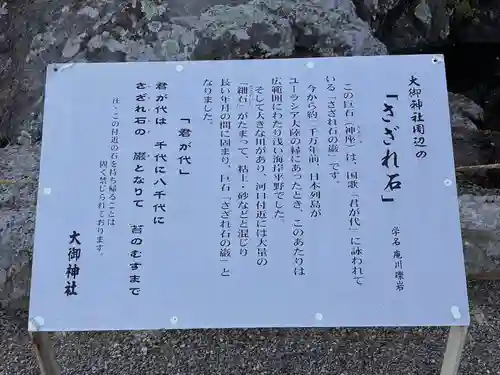 大御神社周辺の
「さざれ石」
学名 庵川礫岩
この巨石(神座)は、国歌「君が代」に詠われて
いる「さざれ石の巌」です。
今から約一千万年前、日本列島が
ユーラシア大陸の縁にあったとき、このあたりは
広範囲にわたり浅い海岸平野でした。
そして大きな川があり、河口付近には大量の
「細石」がたまって、粘土・砂などと混じり
長い年月の間に固まり、巨石「さざれ石の巌」と
なりました。
「君が代」
君が代は 千代に八千代に
さざれ石の 巌となりて 苔のむすまで
注、この付近の石を持ち帰ることは
固く禁じられております。
大御神社